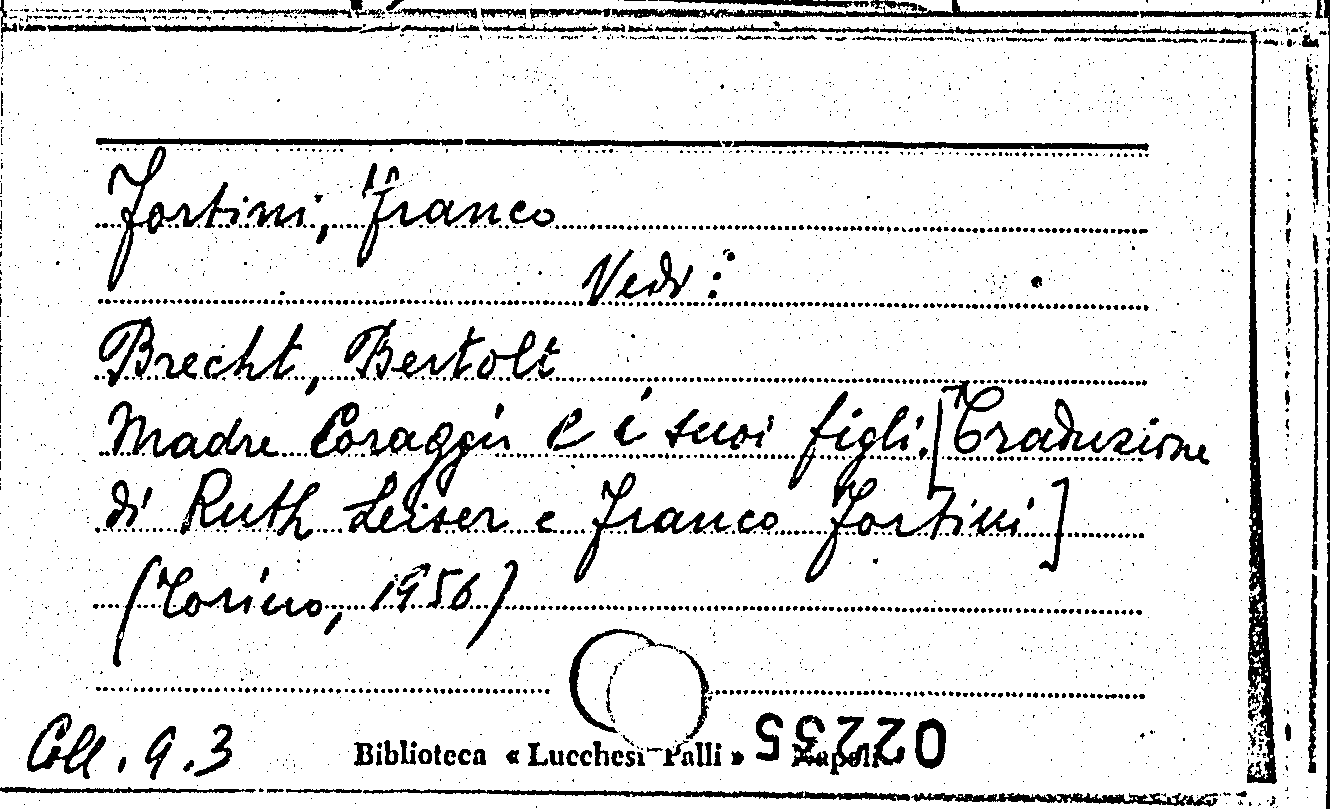 Fortini, Franco
Vedi:
Brecht, Bertolt
Madre Coraggio e i suoi figli. [Traduzione
di Ruth Leiser e Franco Fortini]
(Torino, 1956)
Coll. 9.3
Biblioteca « Lucchesi Palli » Napoli
02235